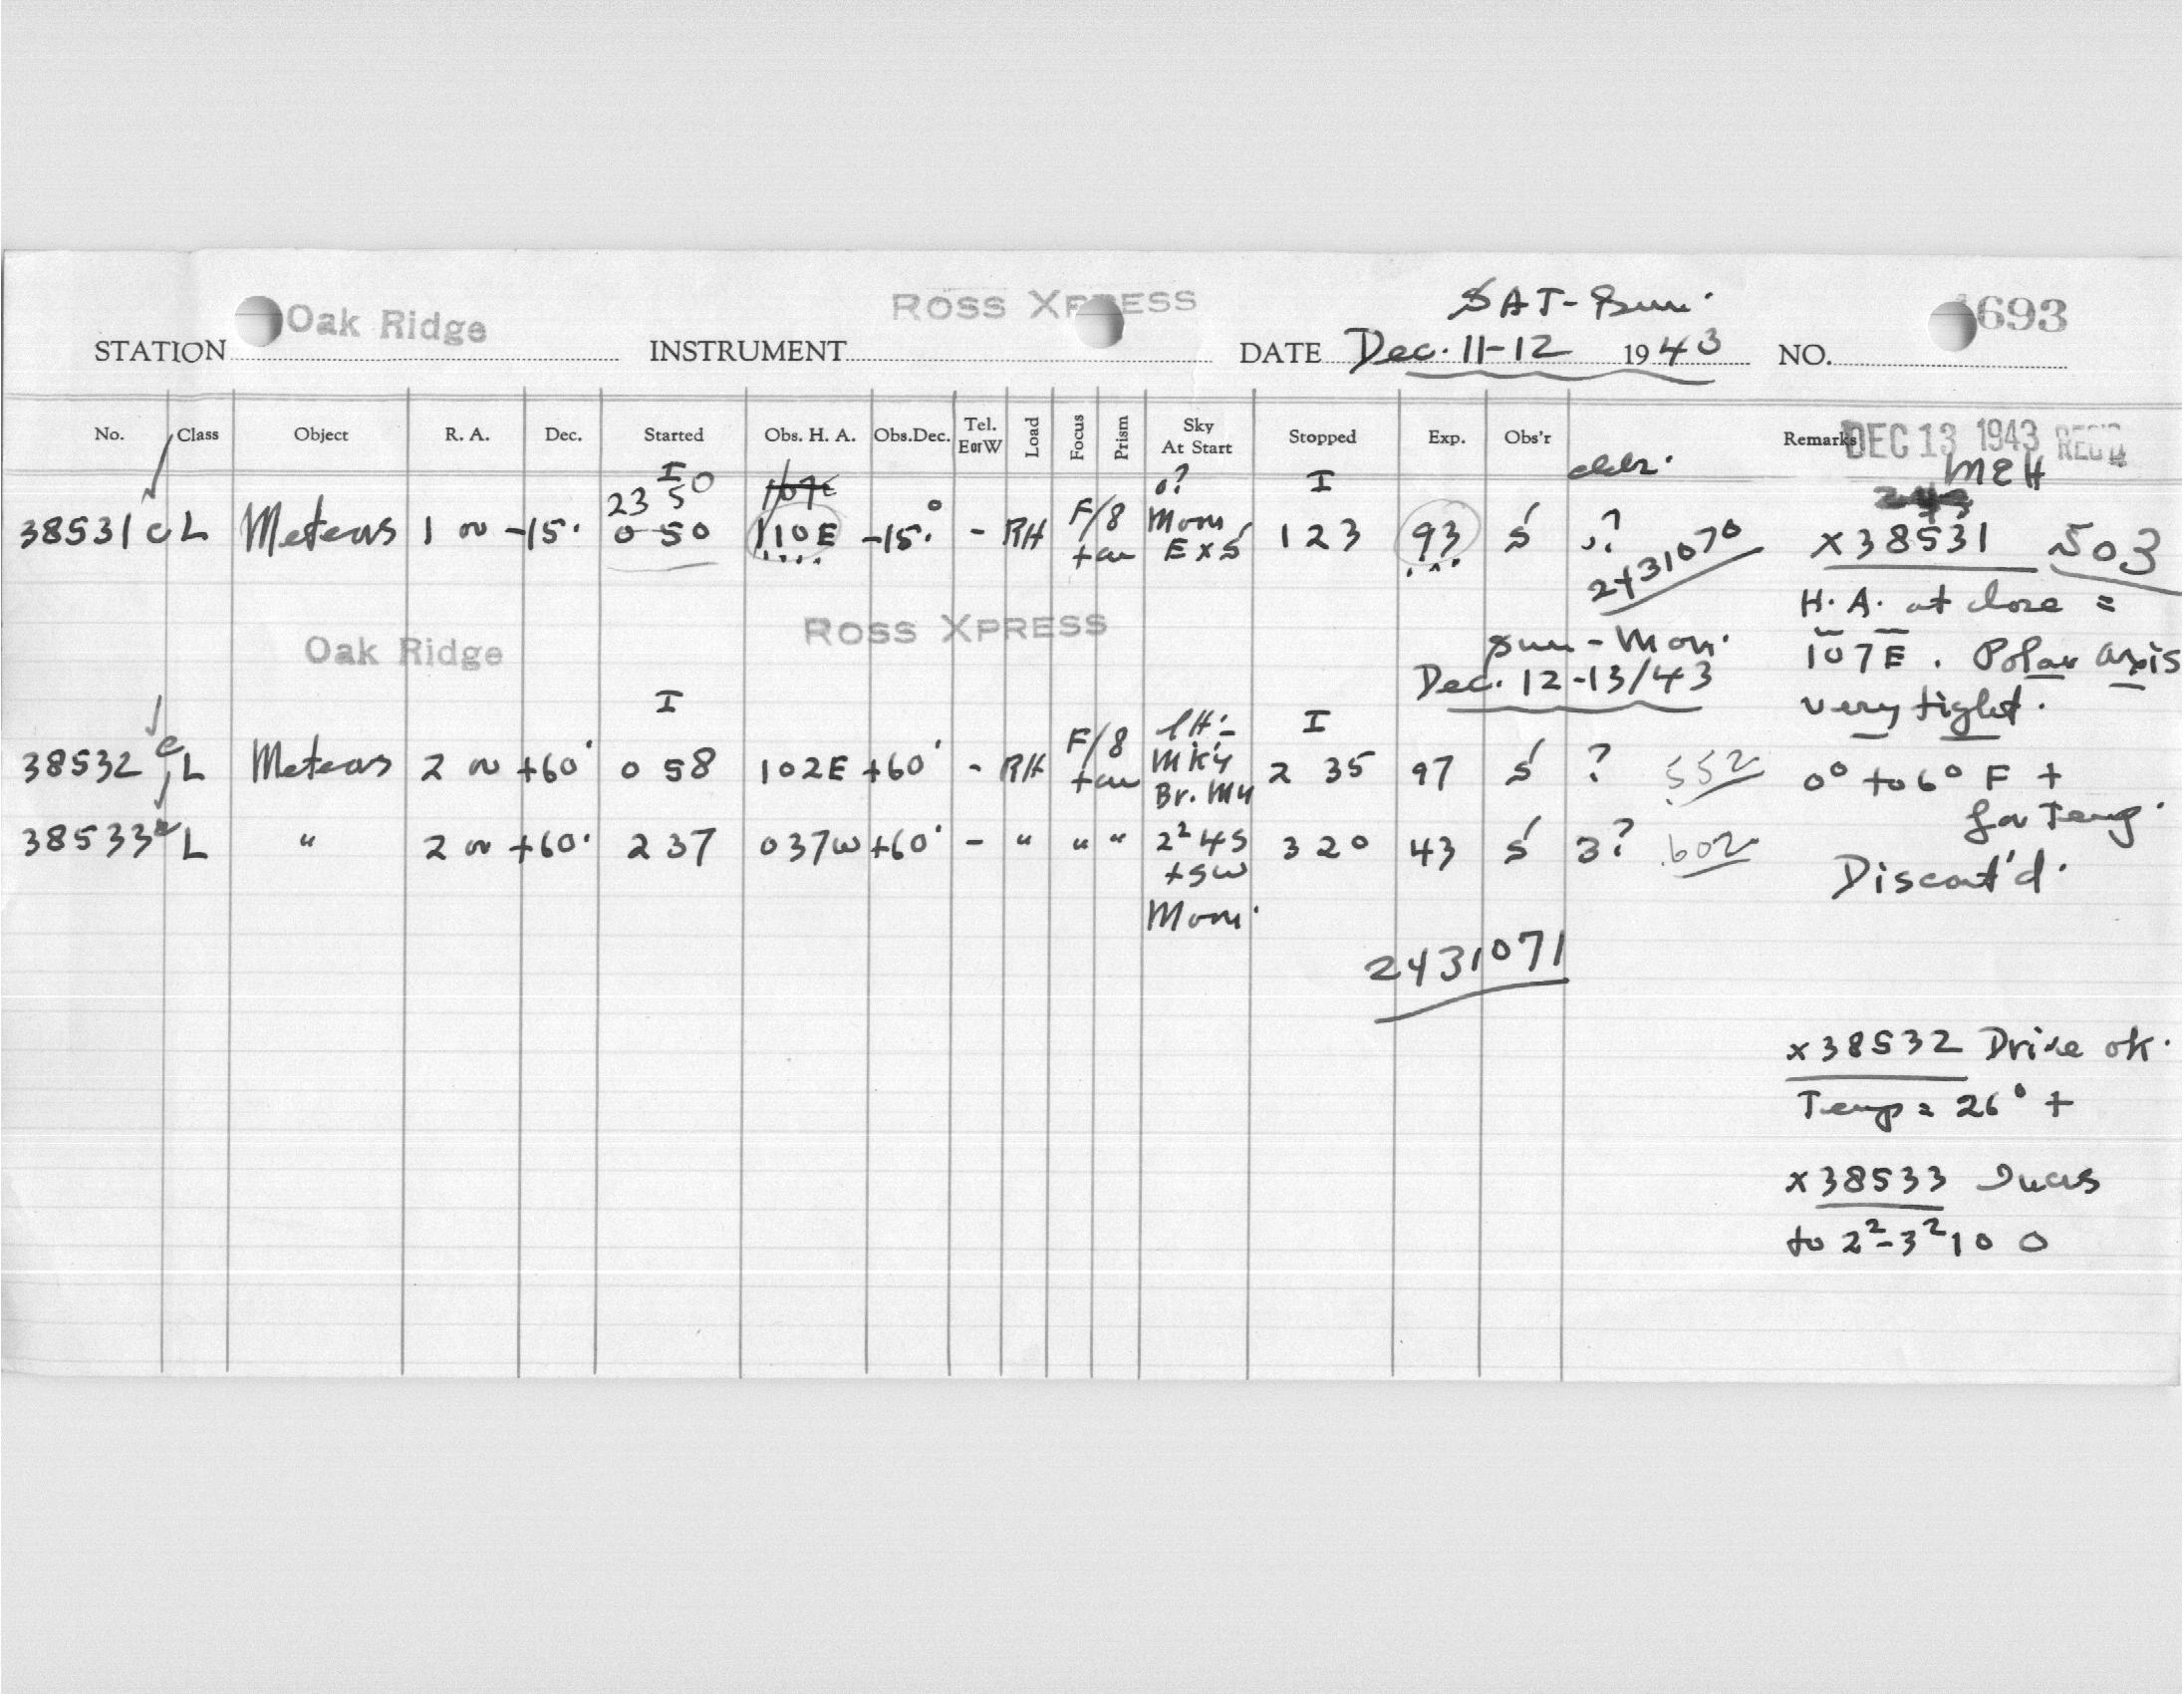 SAT-Sun.
STATION Oak Ridge INSTRUMENT ROSS XPRESS DATE Dec. 11-12 1943 NO. 693
No. Class Object R. A. Dec. Started Obs. H. A. Obs.Dec. Tel. E or W Load Focus Prism Sky At Start Stopped Exp. Obs'r Remarks DEC 13 1943 REC'D
MEH
I I
23 50
38531 c L Meteors 1 00 -15° 0 50 110E -15° - RH F/8 + cu Moon Ex 5 1 23 93 S ? X38531 503
2431070
H. A. at close =
Oak Ridge ROSS XPRESS Sun-Mon. 107E. Polar axis
Dec. 12-13/43 very tight.
I I
38532 c L Meteors 2 00 +60° 0 58 102E +60° - RH F/8 + cu Br. 2 35 97 S ? 552 0° to 6° F +
for Temp.
38533 c L " 2 00 +60° 2 37 037W +60° - " " " 2² 45 + SW Moon. 3 20 43 S 3? .602
Discont'd.
2431071
x38532 Drive ok.
Temp = 26° +
x38533
to 2²-3² 10 0